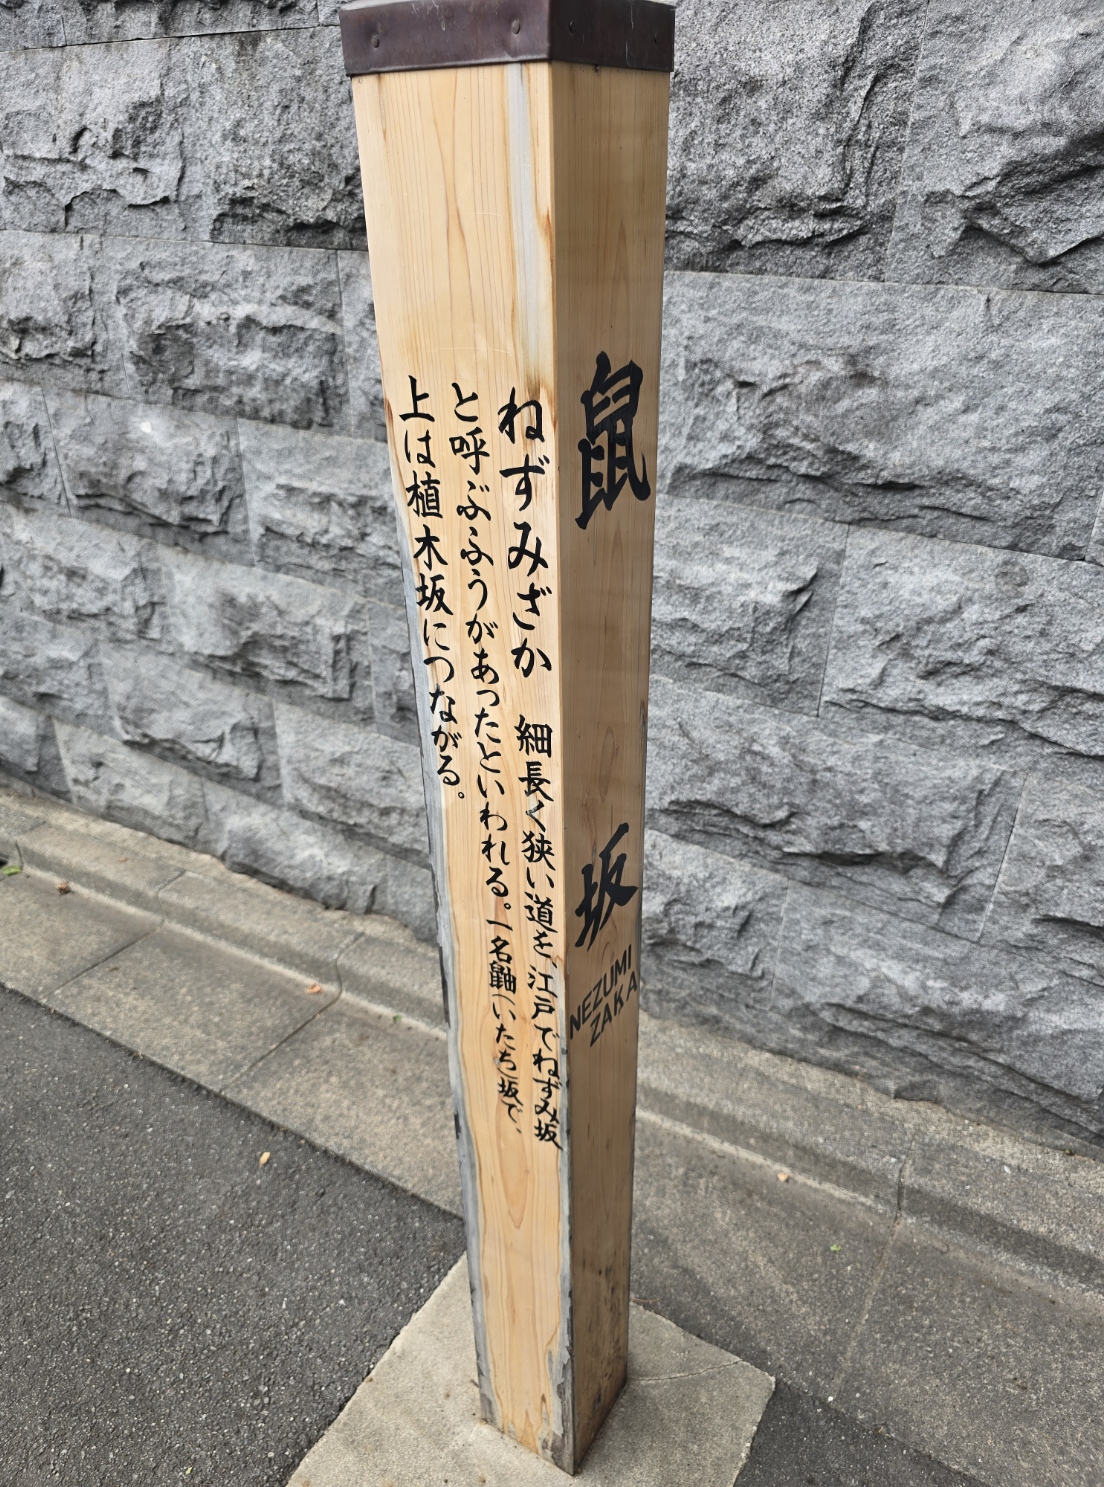 鼠坂
NEZUMI
ZAKA
ねずみざか 細長く狭い道を、江戸でねずみ坂
と呼ぶふうがあったといわれる。一名鼬(いたち)坂で、
上は植木坂につながる。